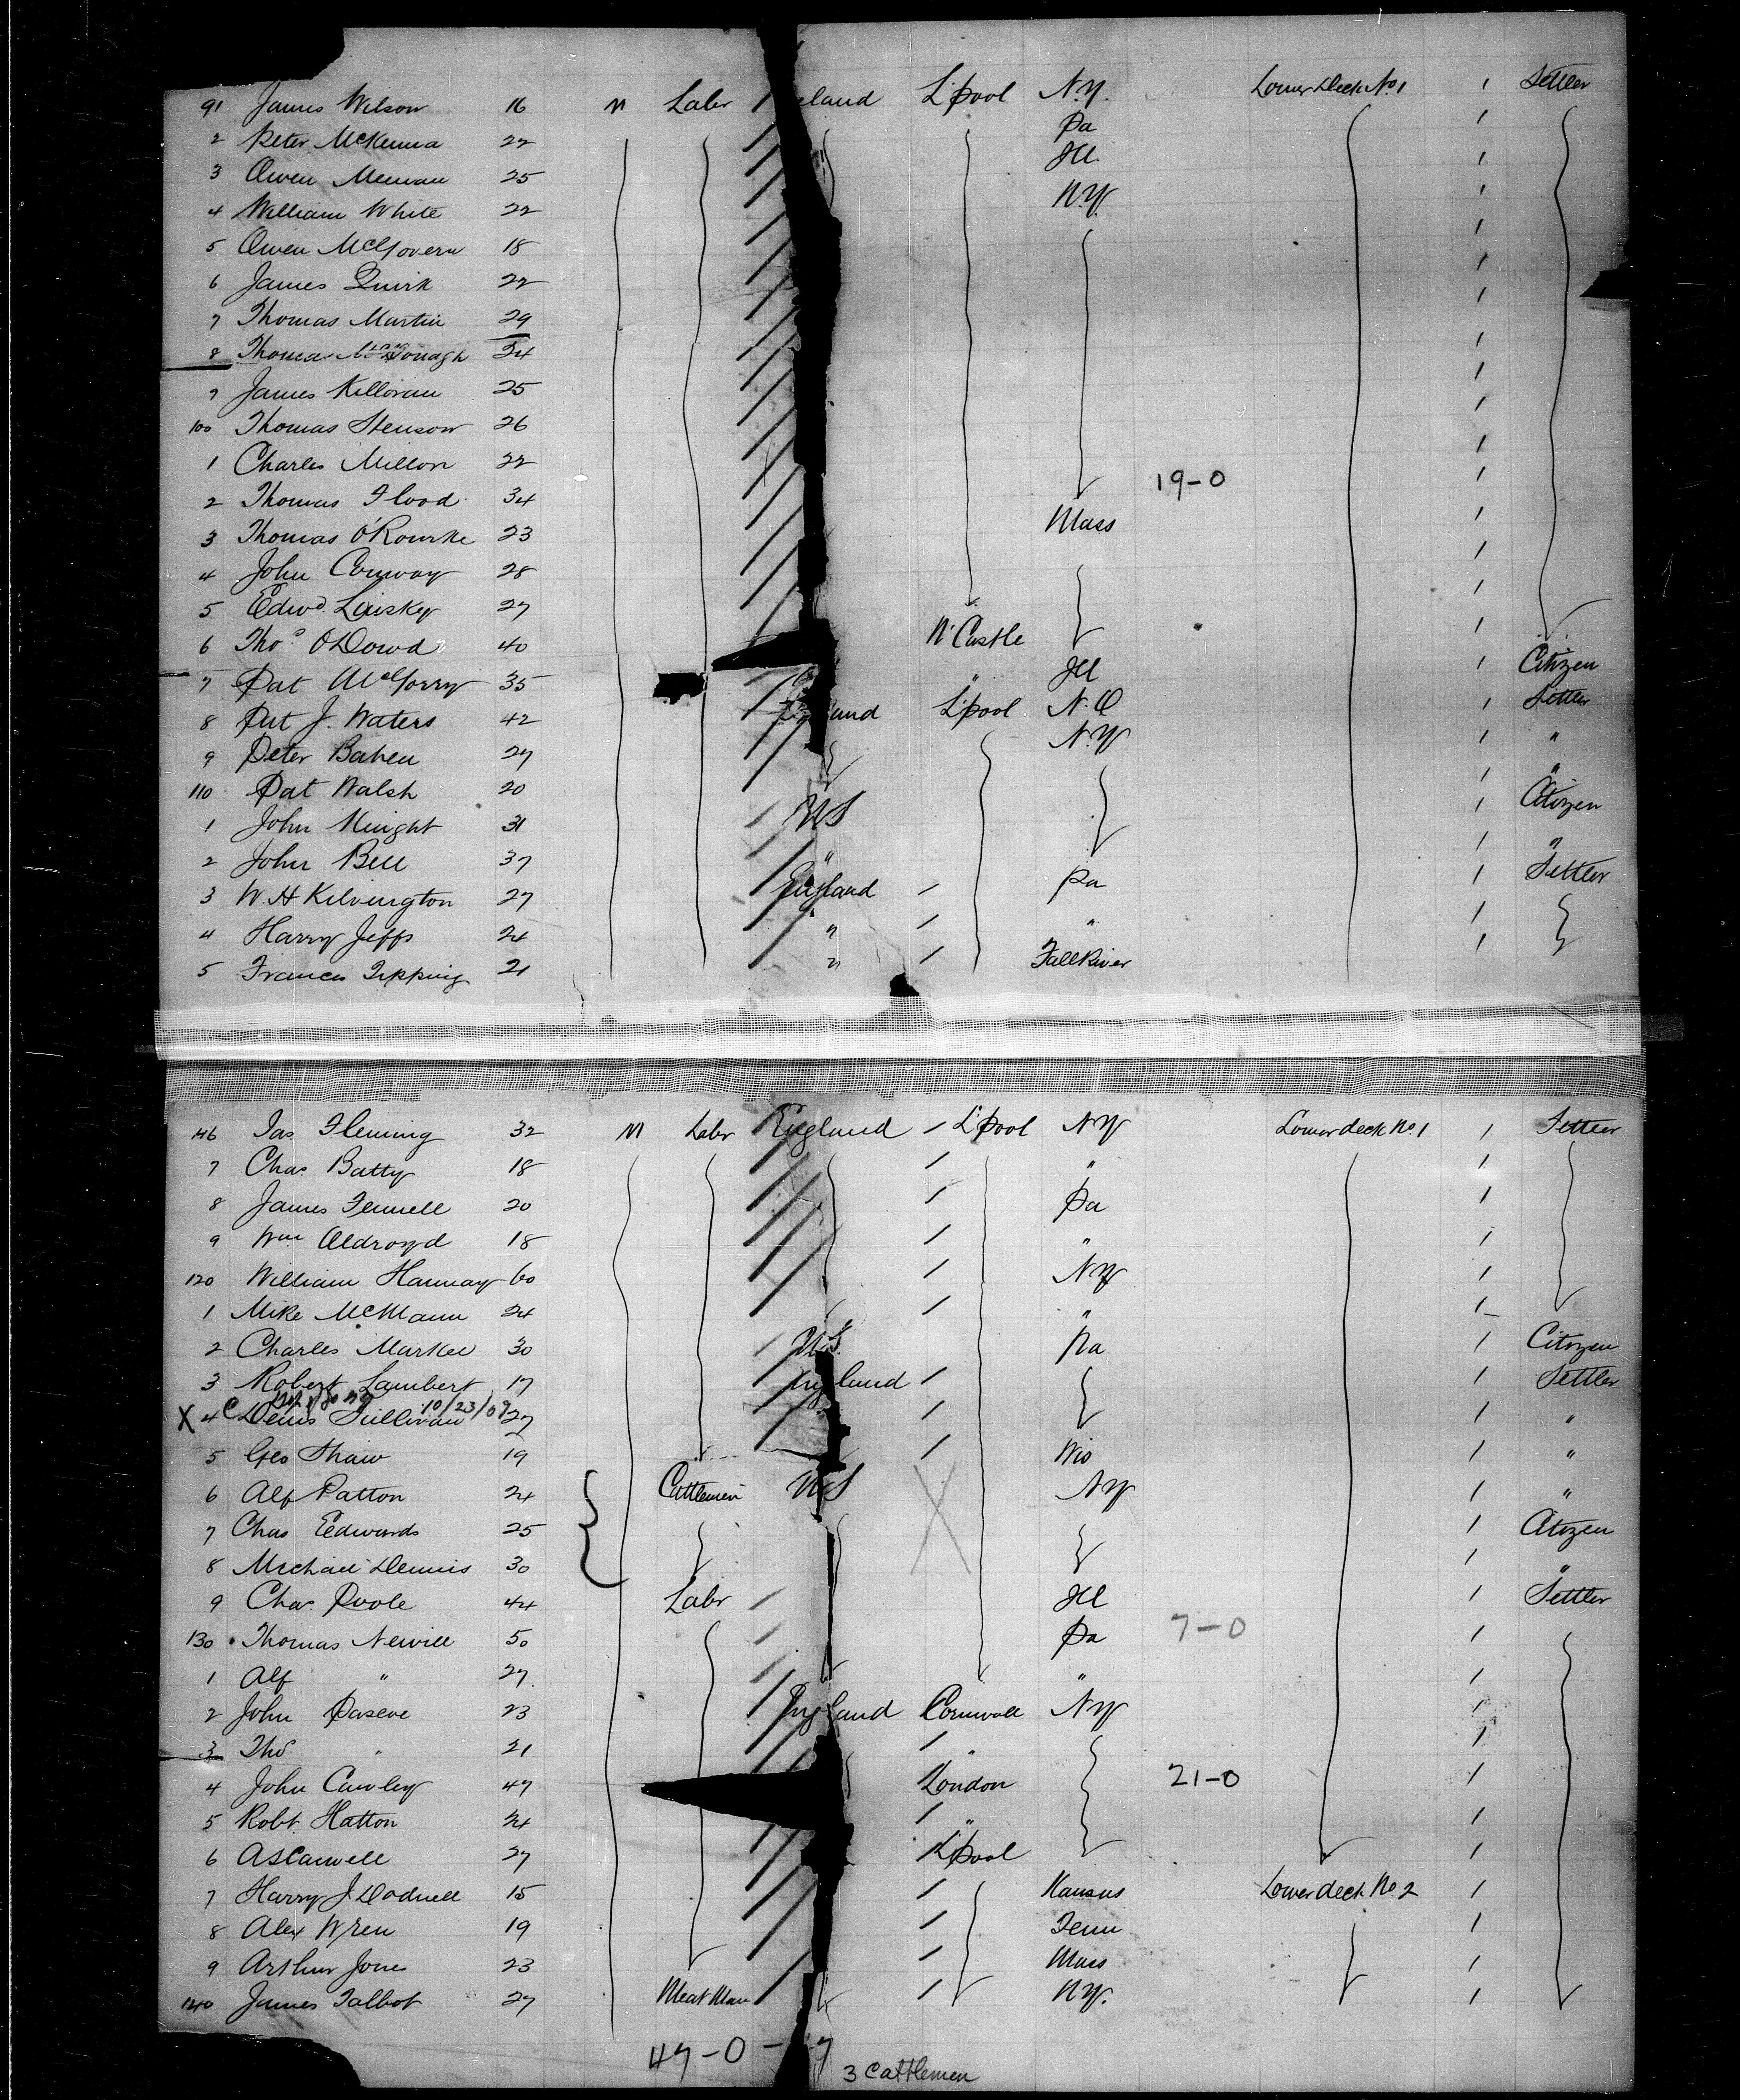 91 James Wilson 16 M Labr land L'pool N.Y. Lower Deck No. 1 1 Settler
2 Peter McKenna 22 Pa 1
3 Owen 25 Ill. 1
4 William White 22 N.Y. 1
5 Owen McGovern 18 1
6 James Quirk 22 1
7 Thomas Martin 29 1
8 Thomas McDonagh 34 1
9 James Killoran 25 1
100 Thomas Stenson 26 1
1 Charles Millon 22 1
2 Thomas Flood 34 19-0 1
3 Thomas O'Rourke 23 Mass 1
4 John Conway 28 1
5 Edwd. Linsky 27 1
6 Thos O'Dowd 40 N'Castle 1
7 Pat McGorry 35 " Ill 1 Citizen
8 Pat J. Waters 42 land L'pool N.O 1 Settler
9 Peter 27 N.Y 1 "
110 Pat Walsh 20 1 "
1 John Knight 31 US 1 Citizen
2 John Bell 37 " 1 "
3 W. H Kilvington 27 England Pa 1 Settler
4 Harry Jeffs 24 " " 1
5 Frances Tipping 21 " Fall River 1
116 Jas. Fleming 32 M Labr England L'pool NY Lower deck No. 1 1 Settler
7 Chas. Batty 18 " 1
8 James Fennell 20 Pa 1
9 Wm Aldroyd 18 " 1
120 William Hannay 60 NY 1
1 Mike McMann 24 " 1
2 Charles Markee 30 U.S. Pa 1 Citizen
3 Robert Lambert 17 England 1 Settler
10/23/09
X 4 C Denis Sullivan 27 1 "
5 Geo Shaw 19 Wis 1 "
6 Alf Patton 24 Cattlemen US X NY 1 "
7 Chas Edwards 25 1 Citizen
8 Michael Dennis 30 1 "
9 Chas. Poole 44 Labr Ill 1 Settler
130 Thomas Nevill 50 Pa 7-0 1
1 Alf " 27 " 1
2 John Pascoe 23 England Cornwall NY 1
3 Thos " 21 " 1
4 John Cawley 47 London 21-0 1
5 Robt. Hatton 24 " 1
6 27 L'pool 1
7 Harry J 15 Kansas Lower deck No 2 1
8 Alex Wren 19 Tenn 1
9 Arthur Jones 23 Mass 1
140 James Talbot 27 Meat Man N.Y. 1
47-0- 7
3 Cattlemen